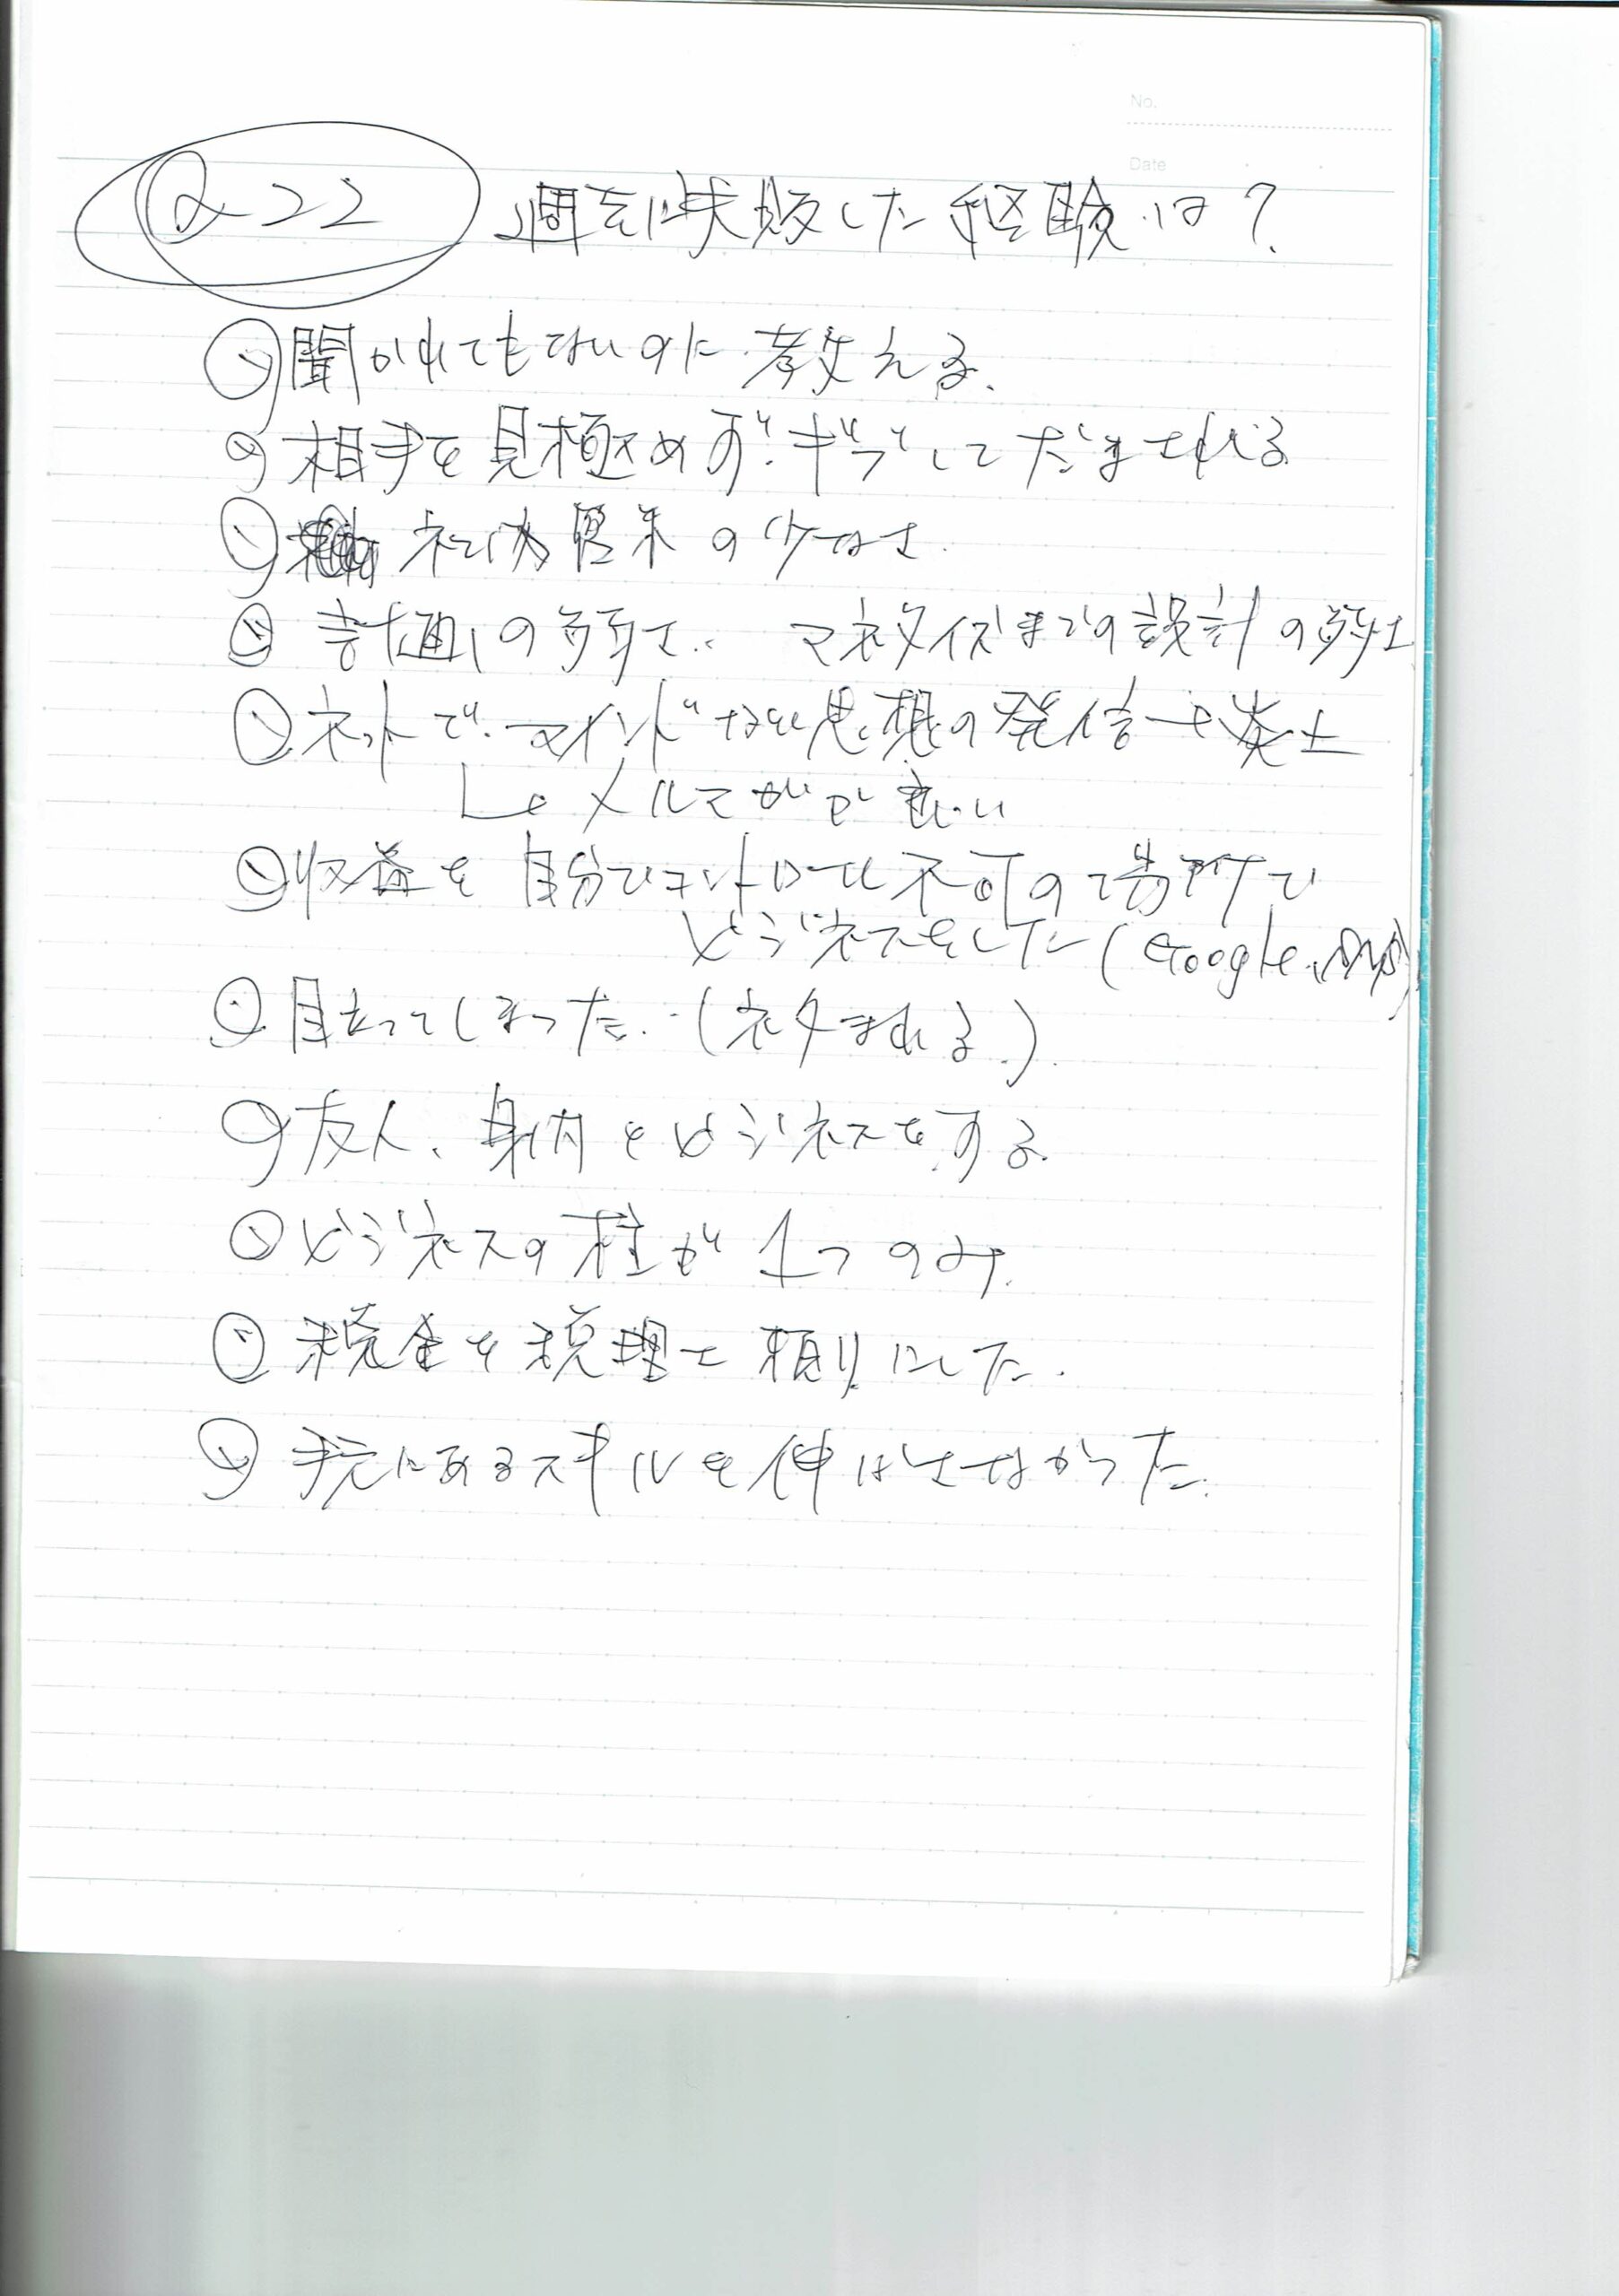 No.
Date
Q22 過去に失敗した経験は?
聞かれてもないのに教える.
相手を見極めず、ギブしてだまされる
社内 の少なさ.
計画の弱さ.. マネタイズまでの設計の弱さ
ネットで.マインドない思想の発信→炎上
↳メルマガが良い
収益を自分でコントロール不可の場所で
ビジネスをした(Google.SNS)
目立ってしまった..(ネタまれる.)
友人、身内とビジネスをする.
ビジネスの柱が1つのみ.
税金を税理士頼りにした.
手元にあるスキルを伸ばさなかった.